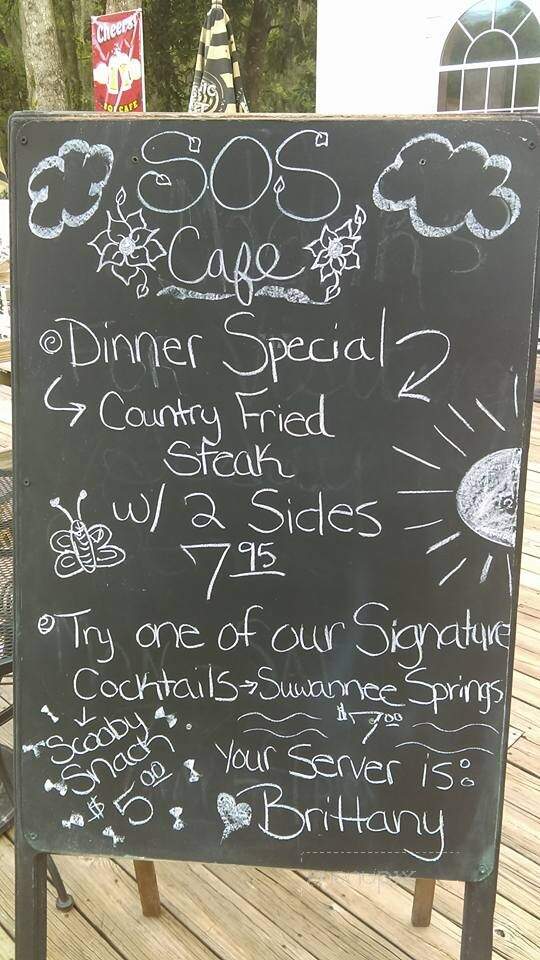 Cheers!
SOS CAFE
SOS
Cafe
Dinner Special
Country Fried
Steak
w/ 2 Sides
7.95
Try one of our Signature
Cocktails → Suwannee Springs
$7.00
Scooby
Snack
$5.00
Your Server is:
Brittany